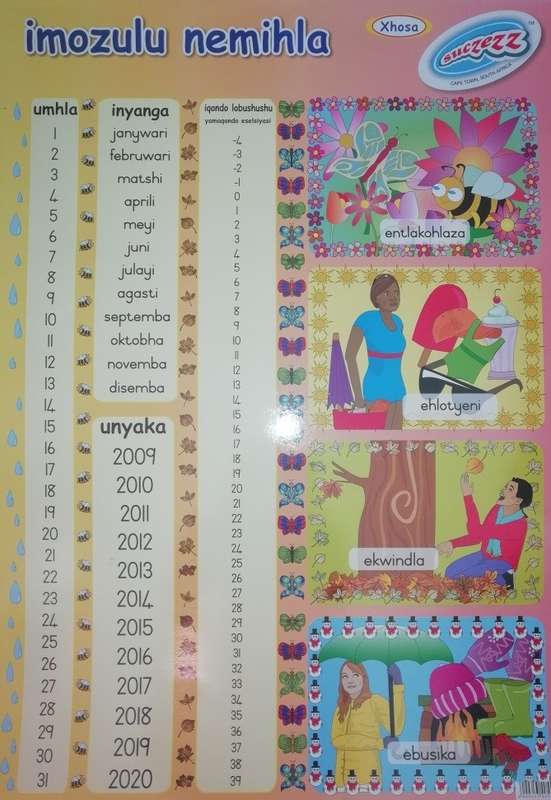 imozulu nemihla
Xhosa
suczezz
CAPE TOWN, SOUTH AFRICA
umhla
1
2
3
4
5
6
7
8
9
10
11
12
13
14
15
16
17
18
19
20
21
22
23
24
25
26
27
28
29
30
31
inyanga
janywari
februwari
matshi
aprili
meyi
juni
julayi
agasti
septemba
oktobha
novemba
disemba
unyaka
2009
2010
2011
2012
2013
2014
2015
2016
2017
2018
2019
2020
iqondo lobushushu
yamaqondo eselsiyasi
-4
-3
-2
-1
0
1
2
3
4
5
6
7
8
9
10
11
12
13
14
15
16
17
18
19
20
21
22
23
24
25
26
27
28
29
30
31
32
33
34
35
36
37
38
39
entlakohlaza
ehlotyeni
ekwindla
ebusika